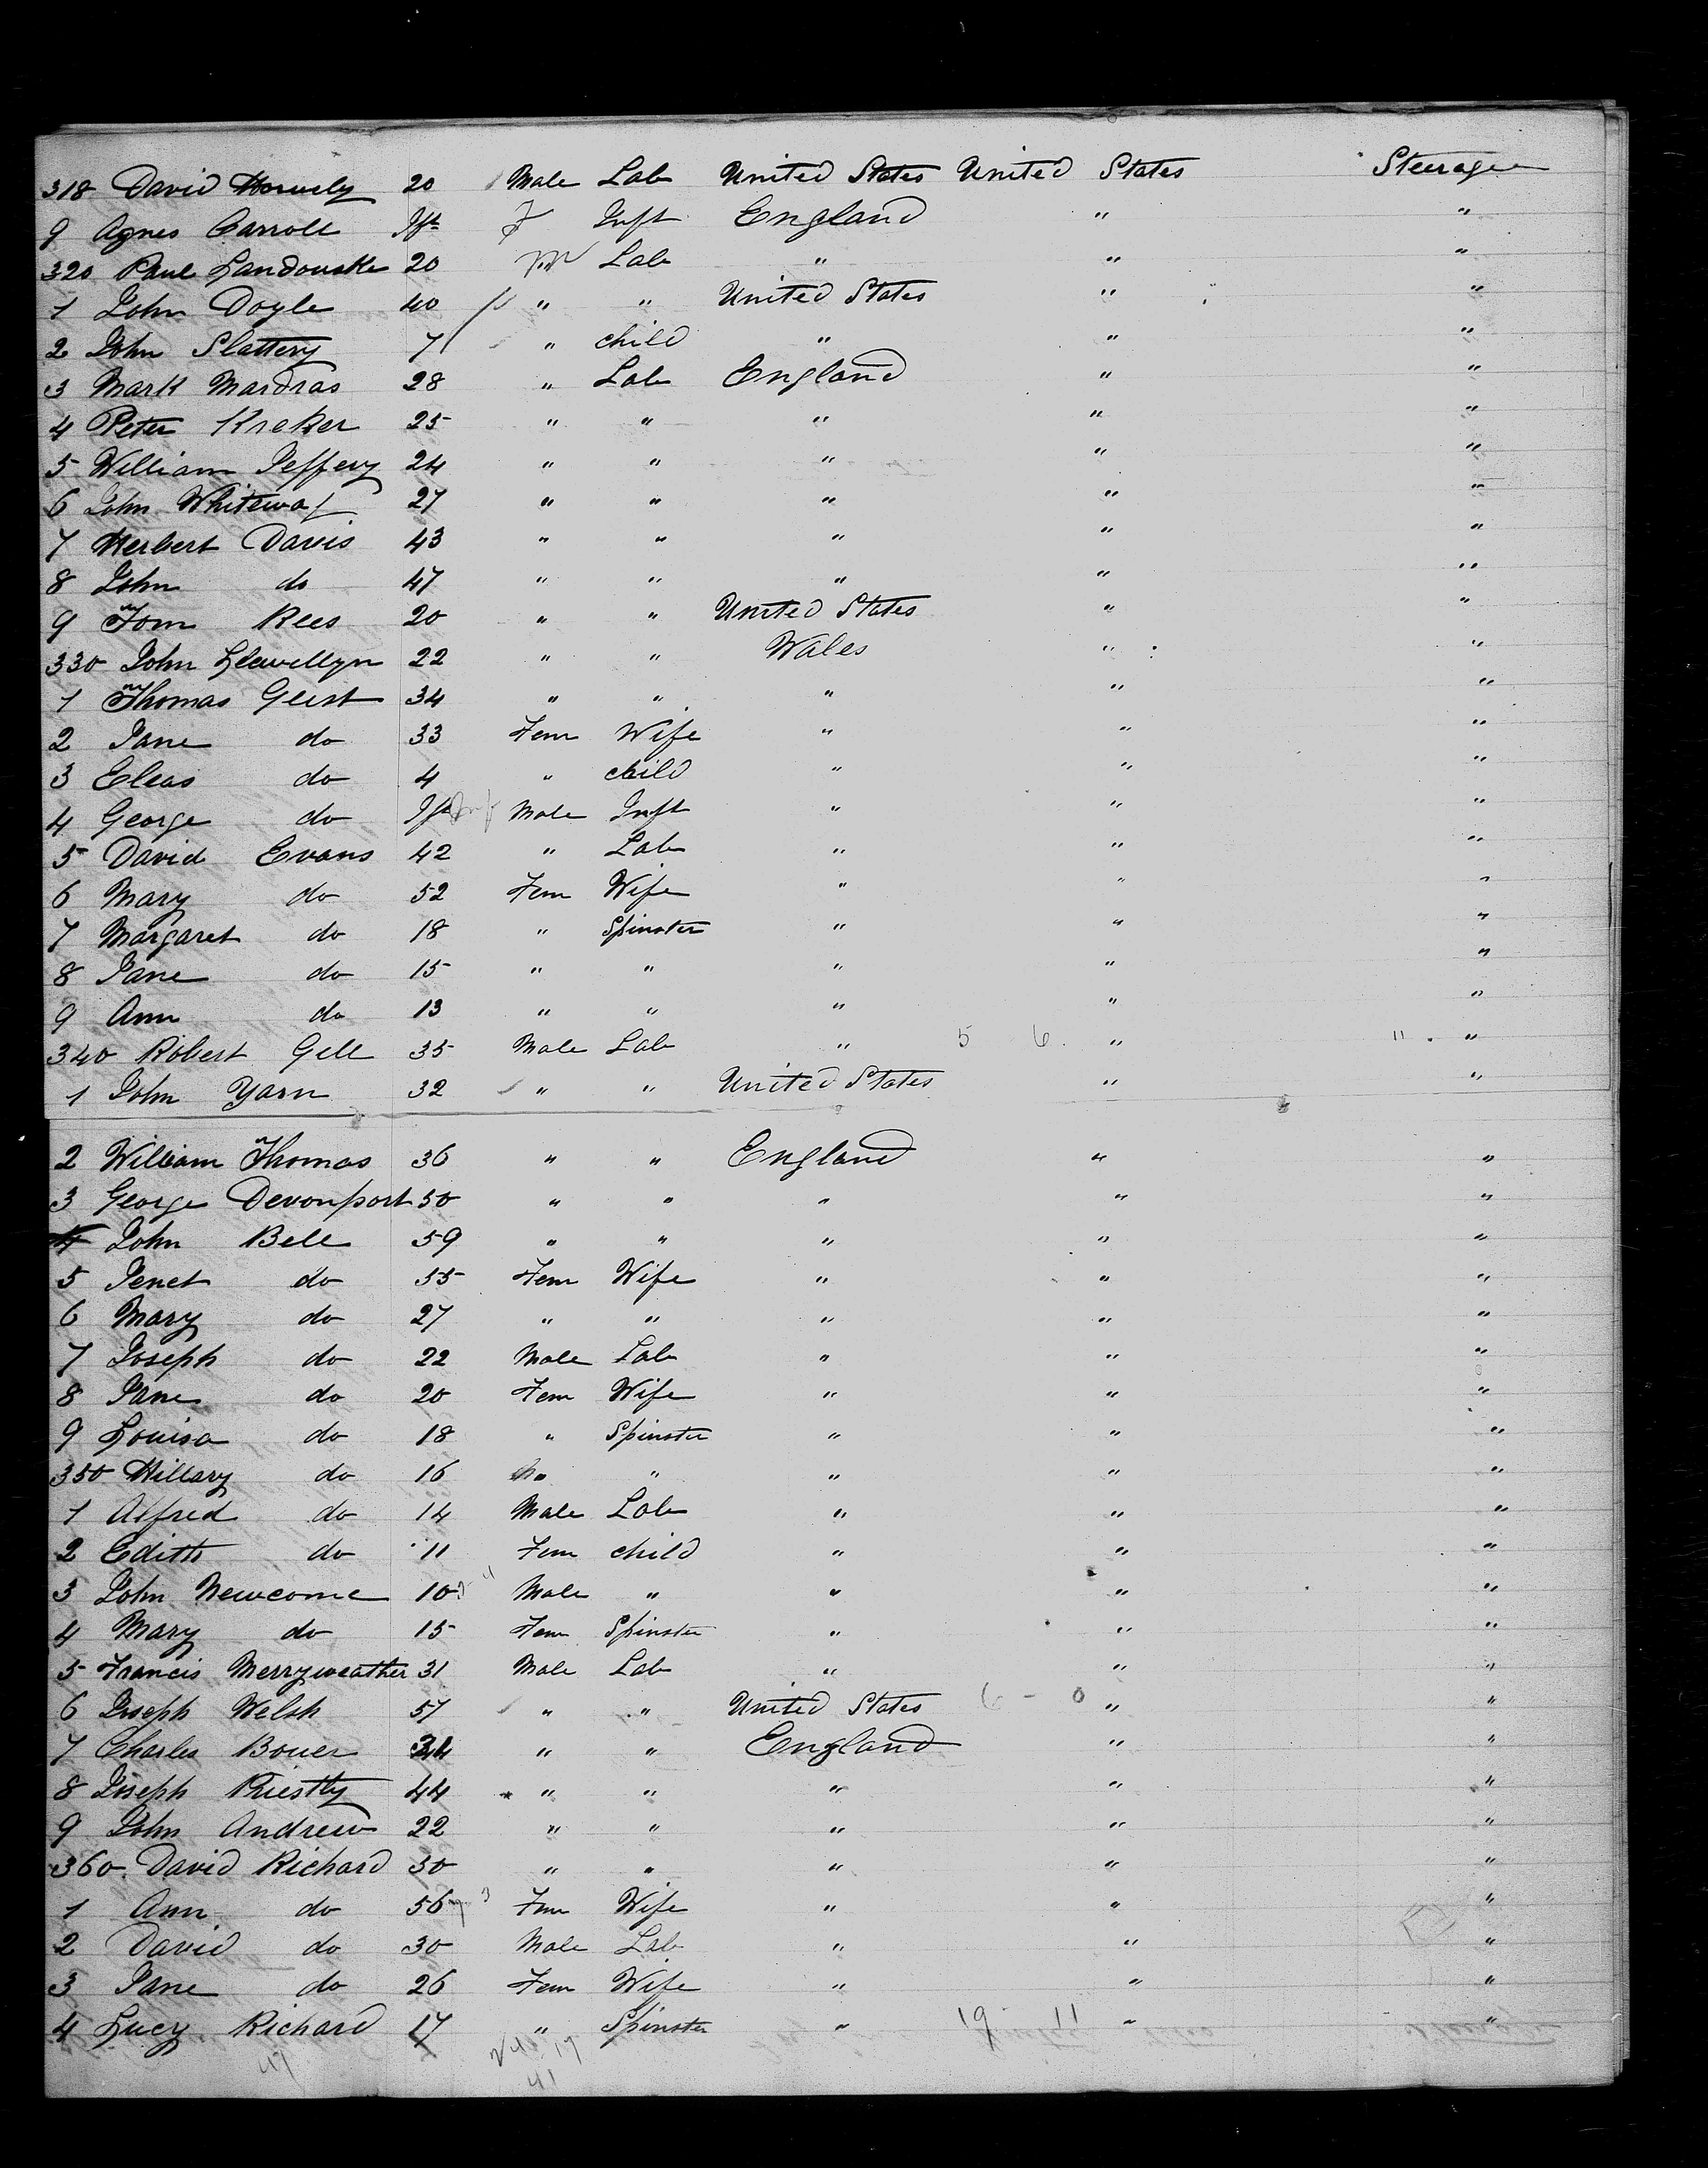 318 David Hornely 20 Male Lab United States United States Steerage
9 Agnes Carroll Ift F Inft England " "
320 Paul Landouske 20 M Lab " " "
1 John Doyle 40 " " United States " "
2 John Slattery 7 " child " " "
3 Mark Mardras 28 " Lab England " "
4 Peter Kreker 25 " " " " "
5 William Jeffery 24 " " " " "
6 John Whiteway 27 " " " " "
7 Herbert Davis 43 " " " " "
8 John do 47 " " " " "
9 Tom Rees 20 " " United States " "
330 John Llewellyn 22 " " Wales " "
1 Thomas Geist 34 " " " " "
2 Jane do 33 Fem Wife " " "
3 Eleas do 4 " child " " "
4 George do Ift Inf Male Inft " " "
5 David Evans 42 " Lab " " "
6 Mary do 52 Fem Wife " " "
7 Margaret do 18 " Spinster " " "
8 Jane do 15 " " " " "
9 Ann do 13 " " " " "
340 Robert Gell 35 Male Lab " 5 6 " 11 "
1 John Yarn 32 " " United States " "
2 William Thomas 36 " " England " "
3 George Devonport 50 " " " " "
4 John Bell 59 " " " " "
5 Jenet do 55 Fem Wife " " "
6 Mary do 27 " " " " "
7 Joseph do 22 Male Lab " " "
8 Jane do 20 Fem Wife " " "
9 Louisa do 18 " Spinster " " "
350 Hillary do 16 do " " " "
1 Alfred do 14 Male Lab " " "
2 Edith do 11 Fem child " " "
3 John Newcome 10 Male " " " "
4 Mary do 15 Fem Spinster " " "
5 Francis Merryweather 31 Male Lab " " "
6 Joseph Welsh 57 " " United States 6 - 0 " "
7 Charles Bouer 34 " " England " "
8 Joseph Priestly 44 " " " " "
9 John Andrew 22 " " " " "
360 David Richard 30 " " " " "
1 Ann do 56 Fem Wife " " "
2 David do 30 Male Lab " " "
3 Jane do 26 Fem Wife " " "
4 Lucy Richard 17 " Spinster " 19 11 " "
47 24 17
41